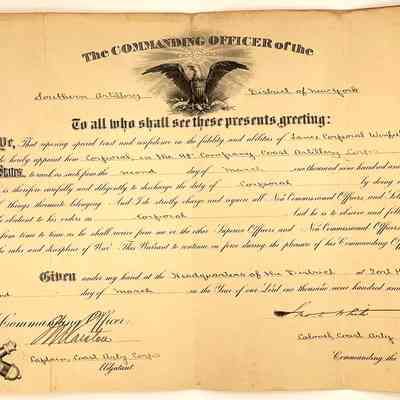 The COMMANDING OFFICER of the
Southern Artillery District of New York
To all who shall see these presents, greeting:
Ye, That reposing special trust and confidence in the fidelity and abilities of Lance Corporal
do hereby appoint him Corporal, in the Company, Coast Artillery Corps
States, to rank as such from the second day of March one thousand nine hundred and
is therefore carefully and diligently to discharge the duty of Corporal by doing a
things thereunto belonging. And I do strictly charge and require all Non-Commissioned Officers and
be obedient to his orders as Corporal And he is to observe and
from time to time as he shall receive from me or the other Superior Officers and Non-Commissioned Officers
the rules and discipline of War. This Warrant to continue in force during the pleasure of his Commanding
Given under my hand at the Headquarters of the District at Fort H
nd day of March in the Year of our Lord one thousand nine hundred and
Commanding Officer:
Captain, Coast Arty Corps
Adjutant
Colonel, Coast Arty
Commanding the